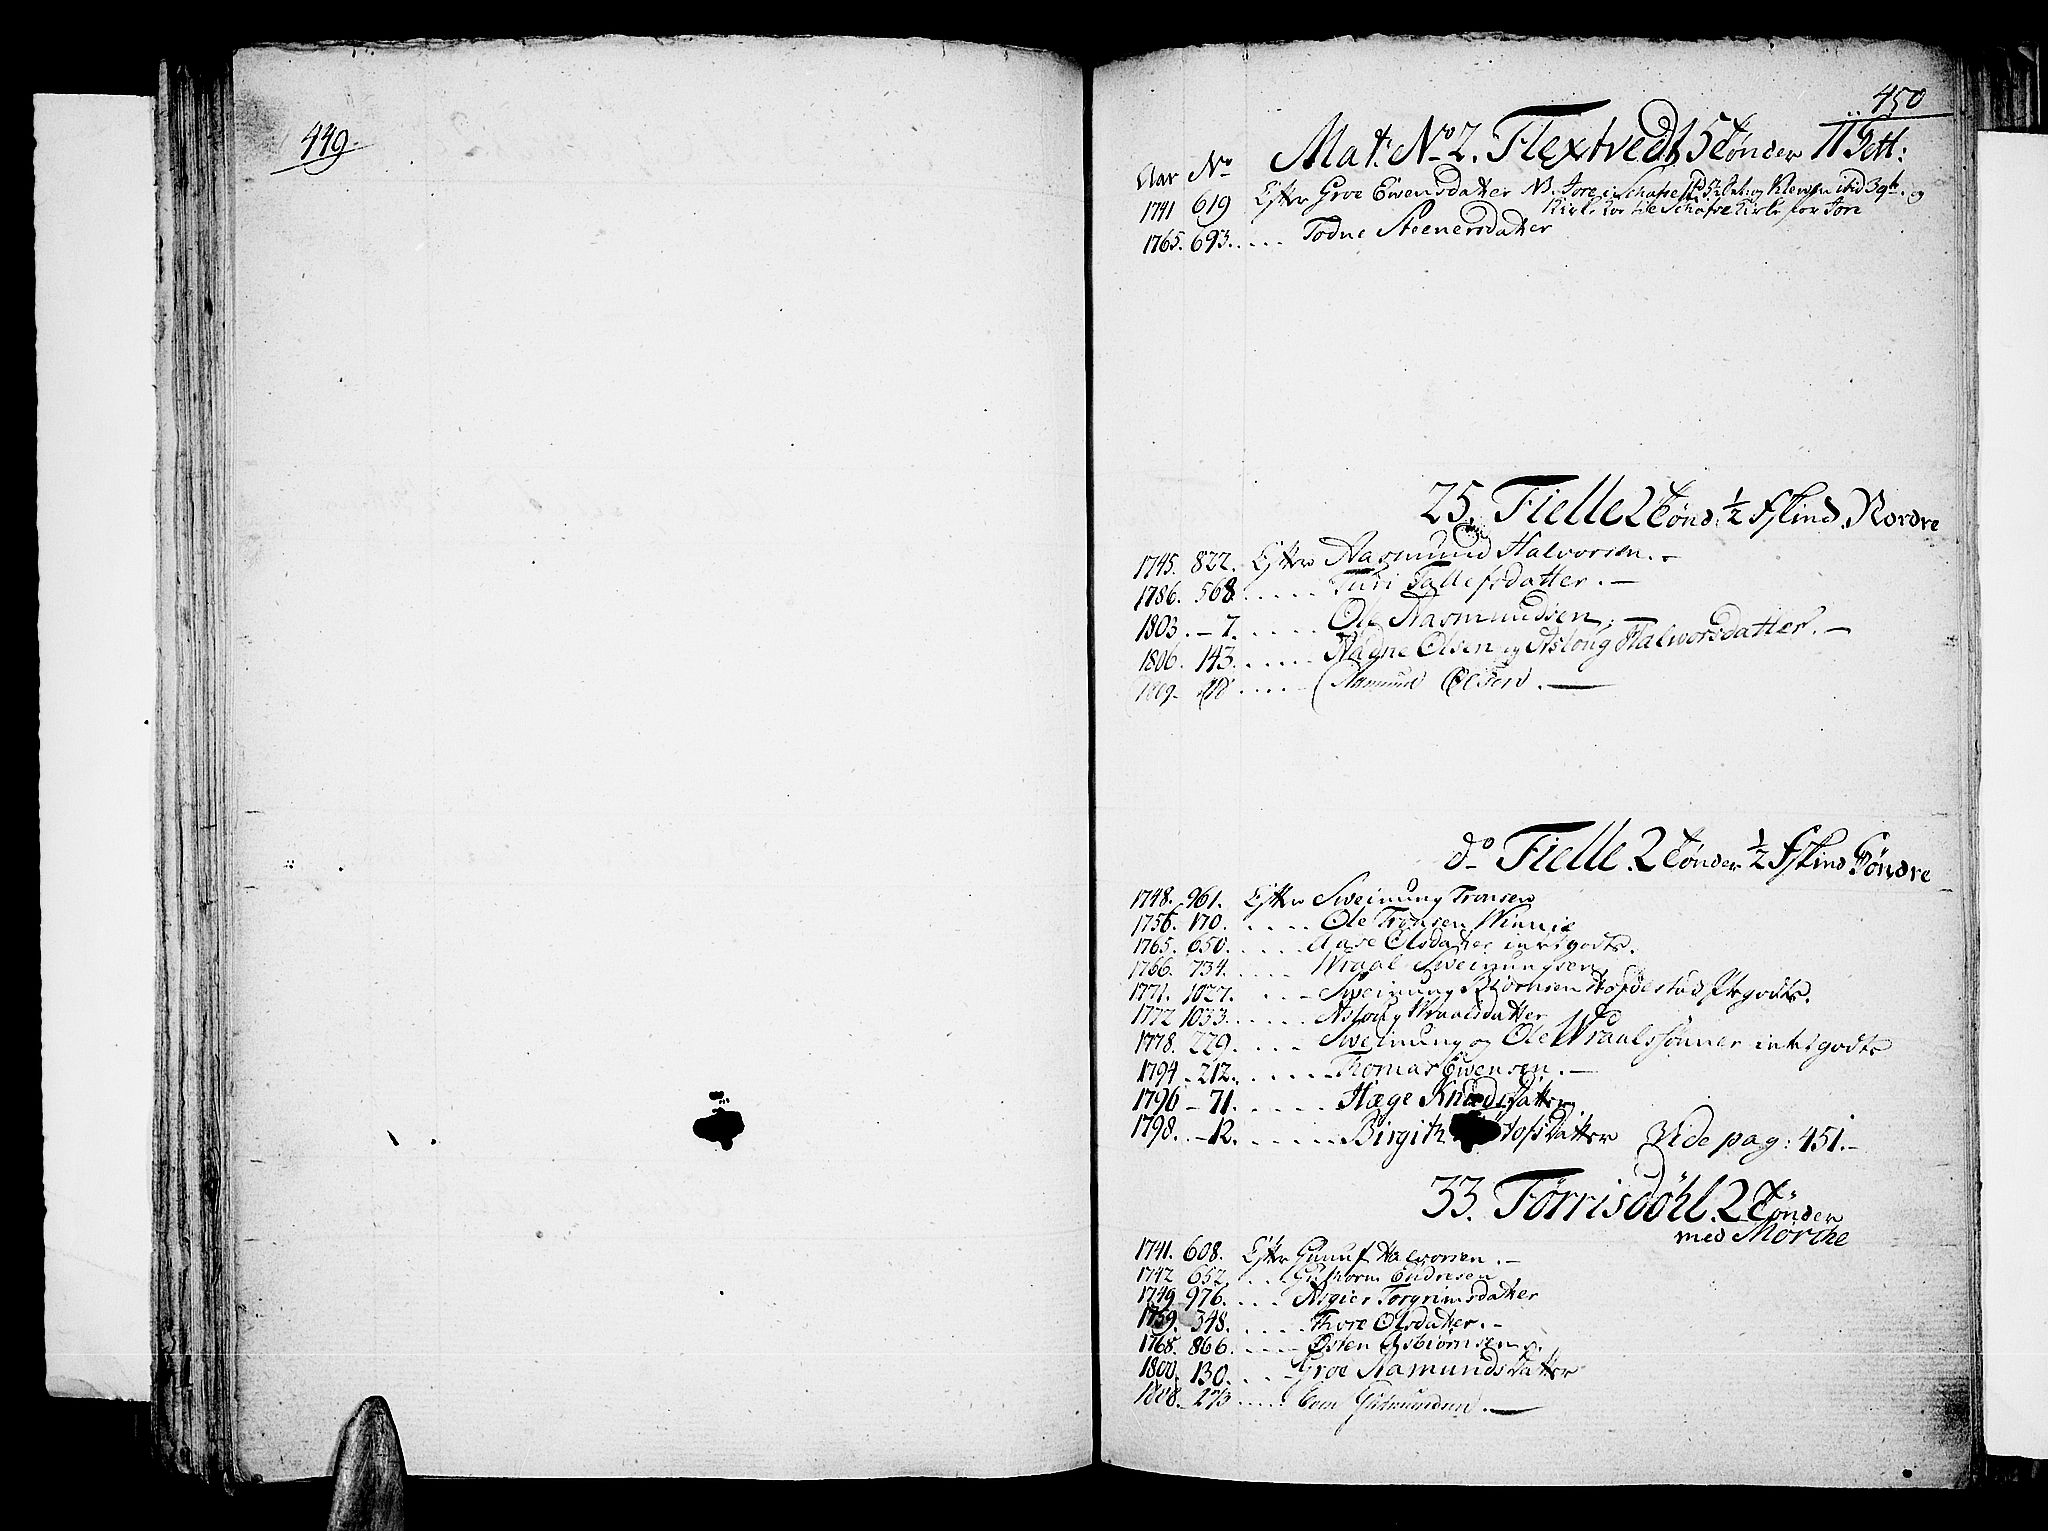 449.
450
Mat: No 2. Flextvedt 5 Tønder 11 Sett:
Aar No
1741 619 Efter Groe Ewensdatter NB. Jore i Schafse og Klewen ibid 3 qtr. og
Kirke Koe til Schafse Kirke for Jore
1765. 693. .... Todne Steenersdatter
25. Fielle 2 Tønd: ½ fskind. Nordre
1745. 822. Efter Aasmund Halvorsen. –
1786. 568. ..... Turi Tallefsdatter. –
1803. – 7. ..... Ole Aasmundsen. –
1806. 143. ..... Aagne Olsen og Asloug Halvorsdatter. –
1809. .... Aasmund Olsen. –
do Fielle. 2 Tønder ½ fskind Søndre
1748. 961. Efter Sweinung Tronsen
1756. 170. .... Ole Tronsen Winnie
1765. 650. .... Aase Olsdatter inkt godts.
1766. 734. .... Wraal Sweinungsen
1771. 1027. ... Sweinung Biørnsen godts.
1772 1033. ..... Asloug Wraalsdatter
1778. 229. .... Sweinung og Ole Wraalssønner inkt godts
1794 – 212. ..... Thomas Ewensen. –
1796 – 71. ..... Hæge Knudsdatter
1798. – 12. ...... Birgith tofsdatter Vide pag: 451. –
33. Tørrisdøhl. 2 Tønder
med Mørche
1741. 608. Efter Gunuf Halvorsen. –
1742 652. ... Guthorm Endresen
1749 976. ... Asgier Torgrimsdatter
1759. 348. .... Thore Olsdatter. –
1768. 866. .... Østen Asbiørnsen
1800. 130. ... Groe Aamundsdatter
1808. – 273 .....